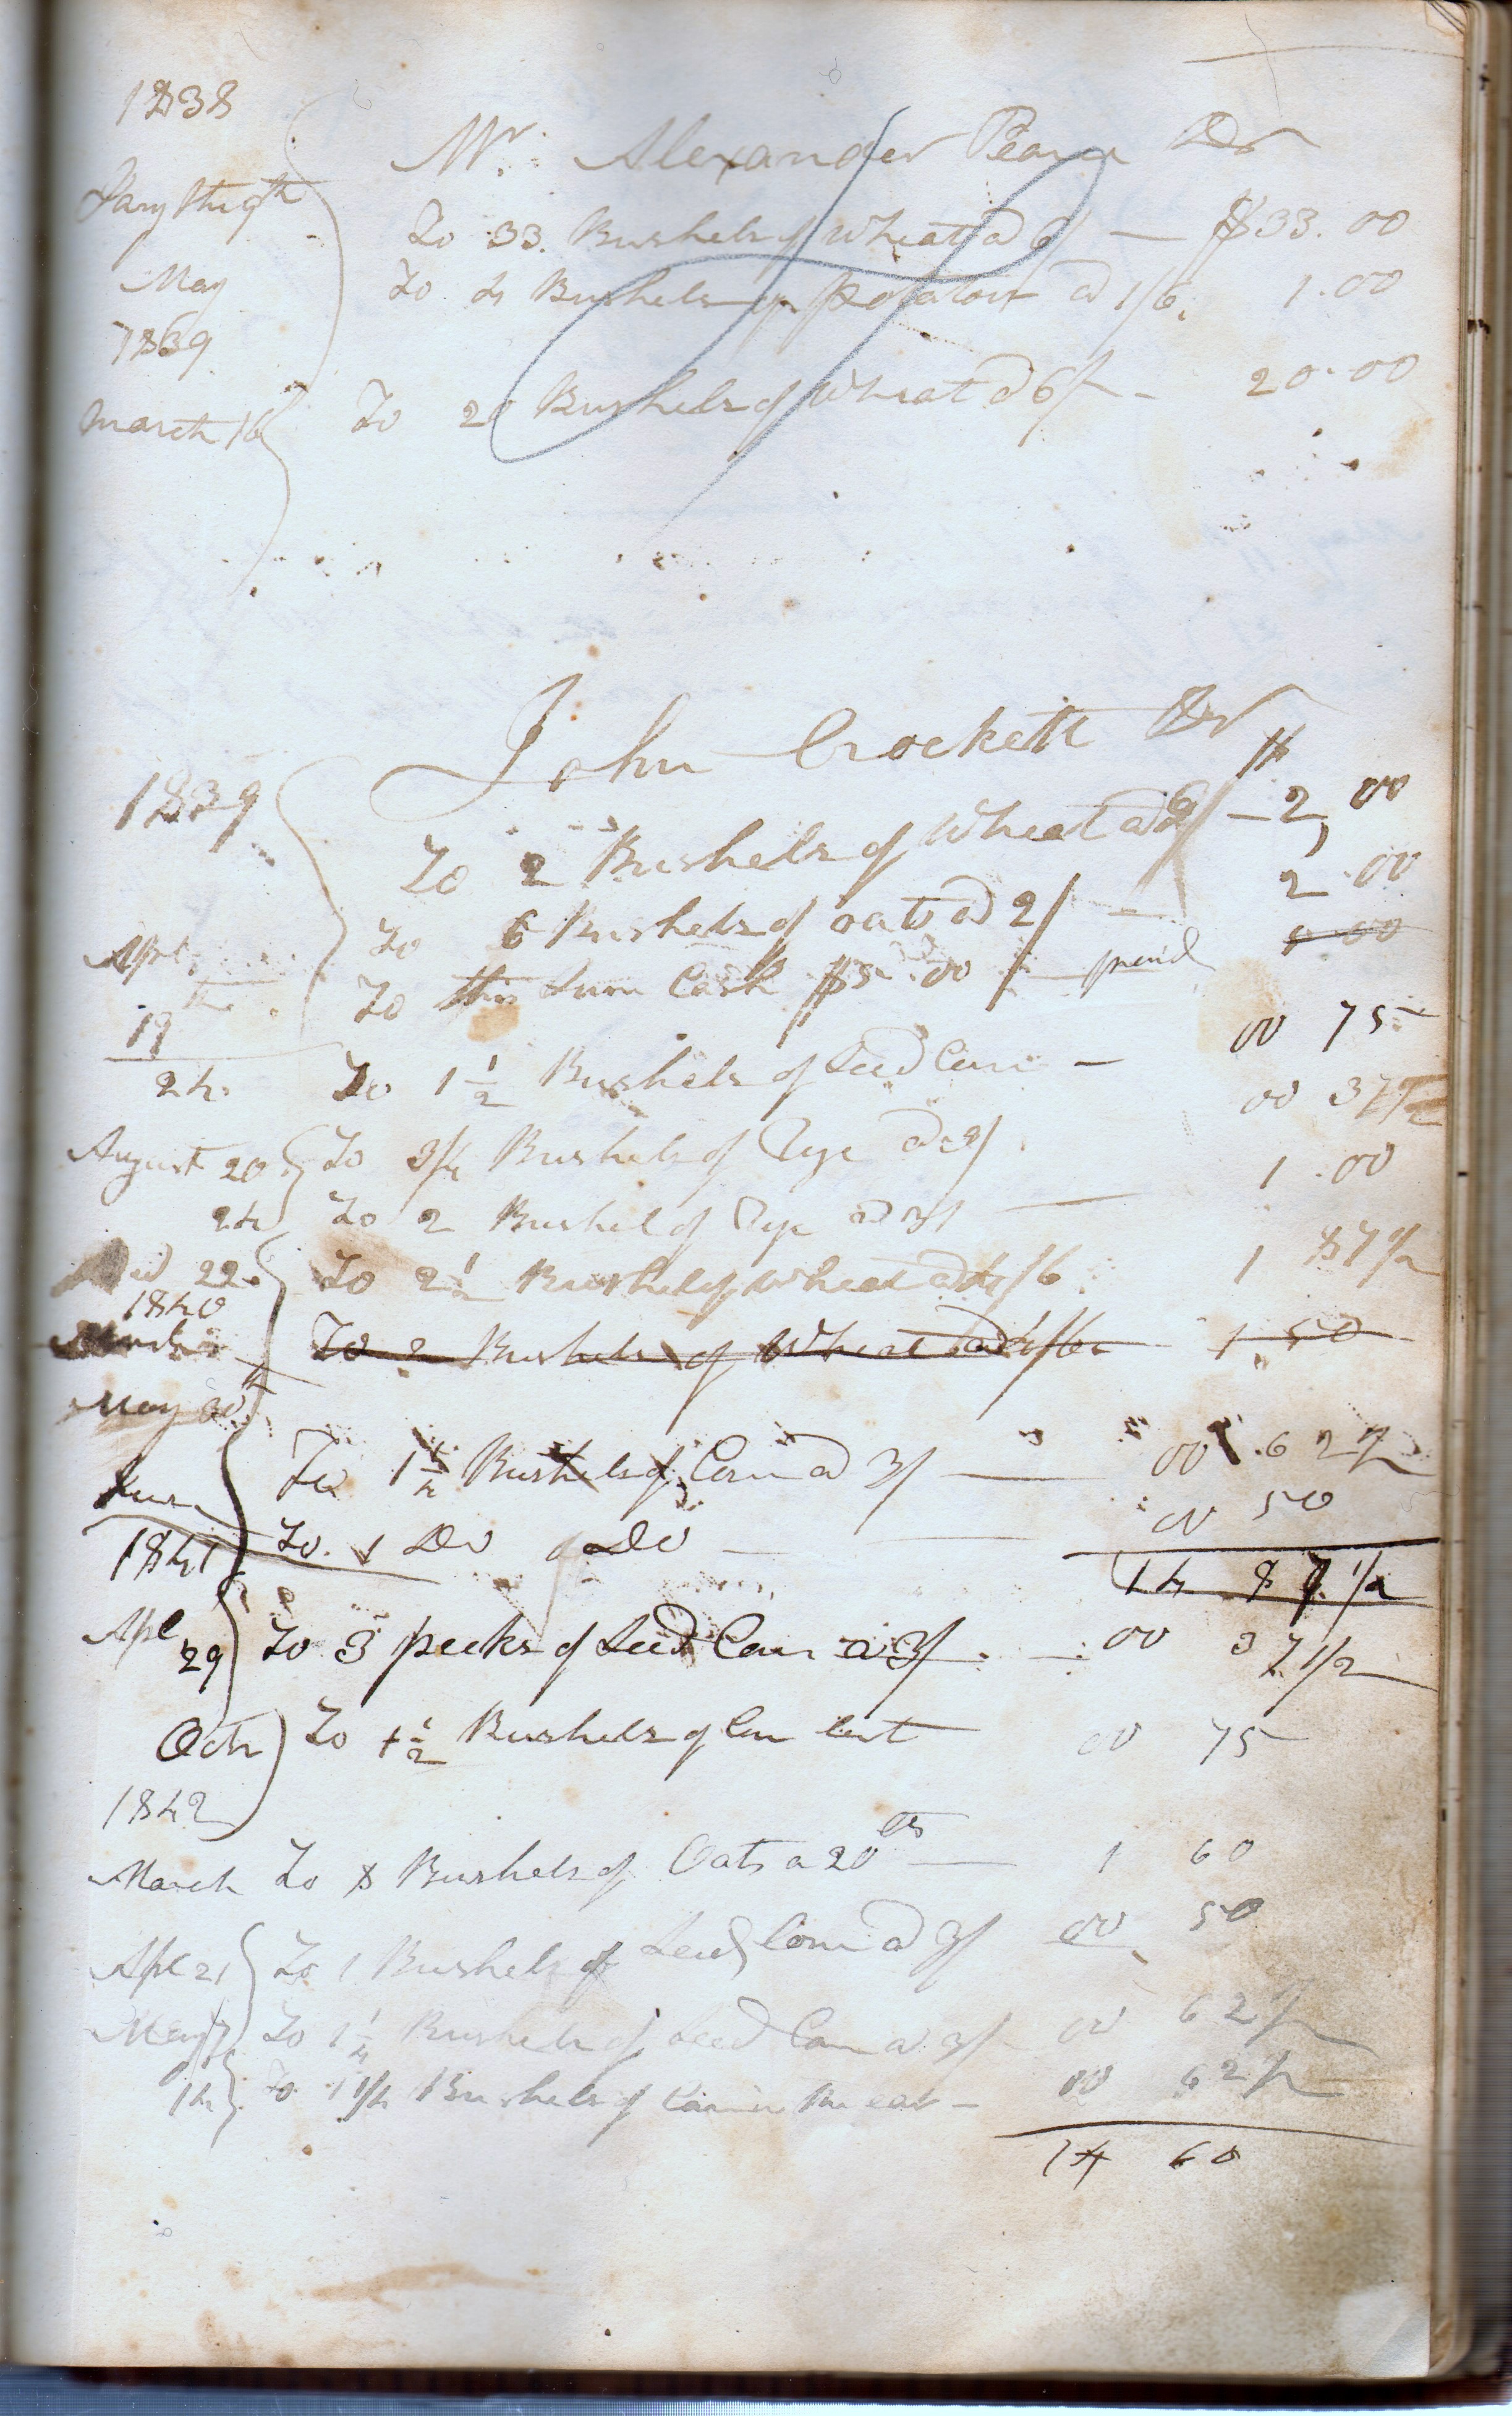 1838
Mr. Alexander Dr
Jany the 9th To 33. Bushels of Wheat @ 6/ — $33.00
May To 4 Bushels of potatoes @ 1/6. 1.00
1839
March 16 To 20 Bushels of Wheat @ 6/ - 20.00
John Crockett Dr
1839 $
To 2 Bushels of Wheat @ 6/ — 2,00
To 6 Bushels of oats @ 2/ — 2.00
Apl. the 19 To this Sum Cash $5.00 — paid 5 00
24. To 1 1/2 Bushels of Seed Corn — 00 75
August 20 To 3/4 Bushels of Rye @ 3/ 00 37 1/2
24 To 2 Bushel of Rye @ 3/ — 1.00
22. To 2 1/2 Bushels of Wheat @ 4/6 1 87 1/2
1840
To 2 Bushels of Wheat @ 4/6 1.50
May 30
To 1 1/4 Bushels of Corn @ 3/ — 00.62 1/2
June To. 1 Do of Do — 00 50
1841 14 87 1/2
Apl 29 To 3 pecks of Seed Corn @ 3/. 00 37 1/2
Octr To 1 1/2 Bushels of Corn lent 00 75
1842
March To 8 Bushels of Oats a 20 cts — 1 60
Apl 21 To 1 Bushels of Seed Corn @ 3/ 00 50
May 7 To 1 1/4 Bushels of Seed Corn @ 3/ 00 62 1/2
14 To 1 1/4 Bushels of Corn in the ear — 00 62 1/2
14 60